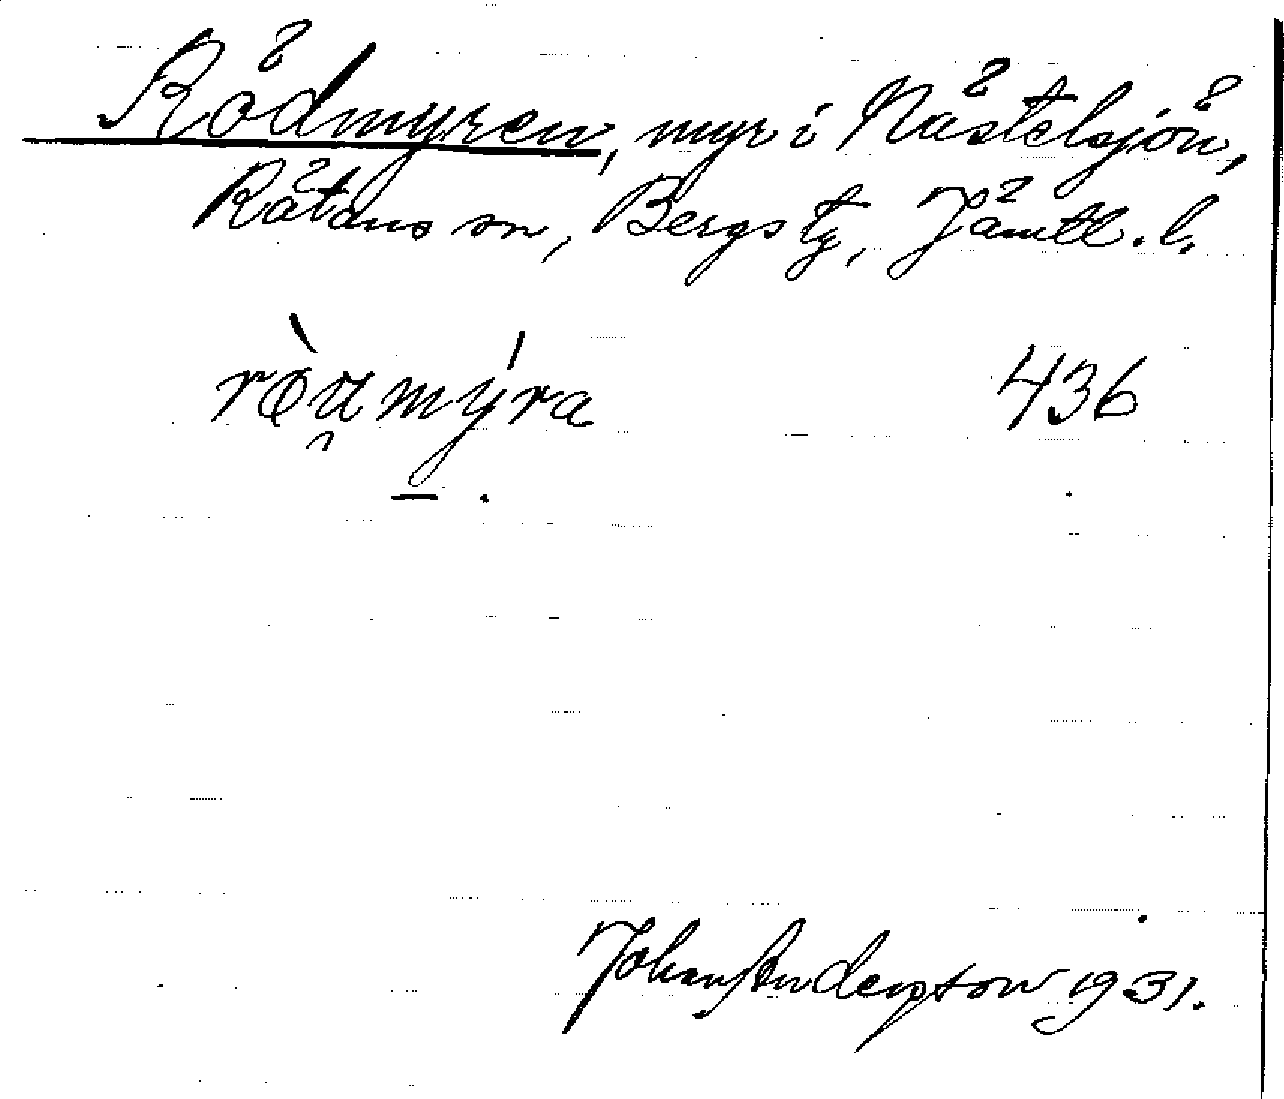 Rödmyren, myr i Nästelsjön,
Rätans sn, Bergs tg, Jämtl. l.
rö̀u̯mýra 436
Johan Anderston 1931.